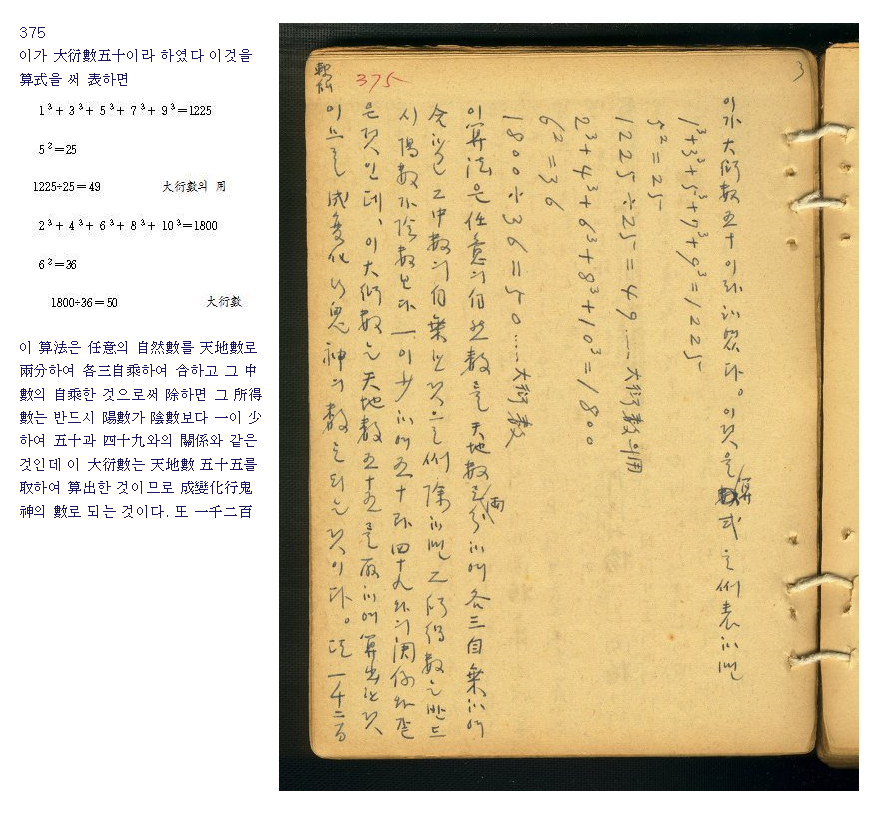 375
이가 大衍數五十이라 하였다 이것을
算式을 써 表하면
1³+ 3³+ 5³+ 7³+ 9³=1225
5²=25
1225÷25=49 大衍數의 用
2³+ 4³+ 6³+ 8³+ 10³=1800
6²=36
1800÷36=50 大衍數
이 算法은 任意의 自然數를 天地數로
兩分하여 各三自乘하여 合하고 그 中
數의 自乘한 것으로써 除하면 그 所得
數는 반드시 陽數가 陰數보다 一이 少
하여 五十과 四十九와의 關係와 같은
것인데 이 大衍數는 天地數 五十五를
取하여 算出한 것이므로 成變化行鬼
神의 數로 되는 것이다. 또 一千二百
375
3
이가 大衍數五十이라 하였다。이것을 算式을 써 表하면
1³+3³+5³+7³+9³=1225
5²=25
1225÷25=49……大衍數의用
2³+4³+6³+8³+10³=1800
6²=36
1800÷36=50……大衍數
이算法은 任意의自然數를 天地數로兩分하여 各三自乘하여
合하고 그中數의自乘한것으로써 除하면 그所得數는 반드
시 陽數가陰數보다 一이少하여 五十과四十九와의關係와같
은것인데, 이大衍數는 天地數五十五를 取하여 算出한것
이므로 成變化行鬼神의數로 되는것이다。또 一千二百